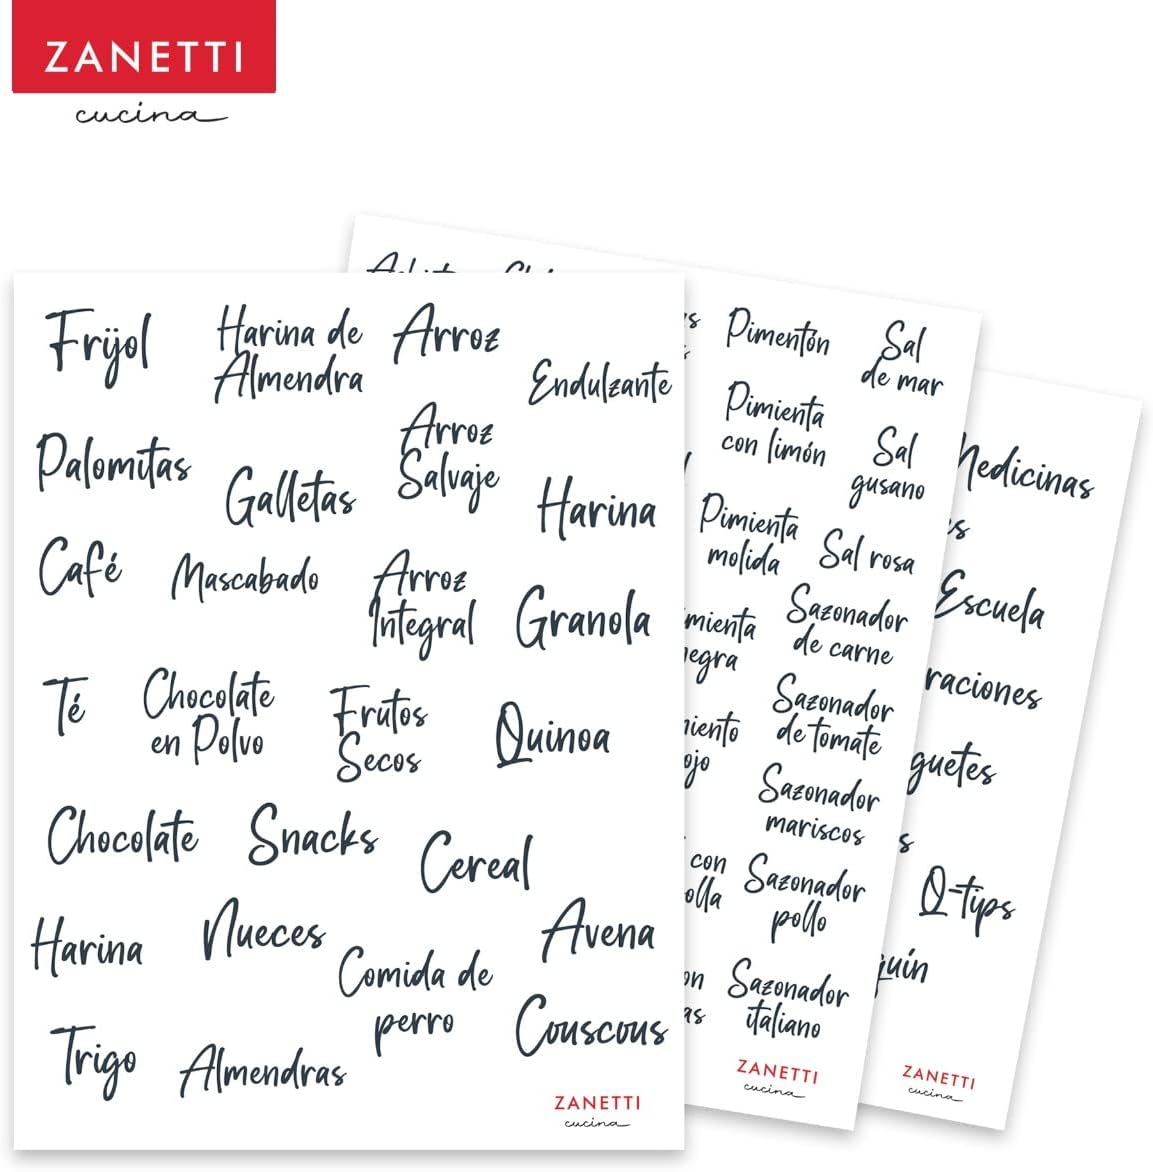 ZANETTI
cucina
Frijol
Harina de
Almendra
Arroz
Endulzante
Palomitas
Galletas
Arroz
Salvaje
Harina
Café
Mascabado
Arroz
Integral
Granola
Té
Chocolate
en Polvo
Frutos
Secos
Quinoa
Chocolate
Snacks
Cereal
Harina
Nueces
Avena
Comida de
perro
Couscous
Trigo
Almendras
ZANETTI
cucina
Pimentón
Sal
de mar
Pimienta
con limón
Sal
gusano
Pimienta
molida
Sal rosa
Sazonador
de carne
Sazonador
de tomate
Sazonador
mariscos
con
Sazonador
pollo
Sazonador
italiano
ZANETTI
cucina
Medicinas
Escuela
Q-tips
ZANETTI
cucina